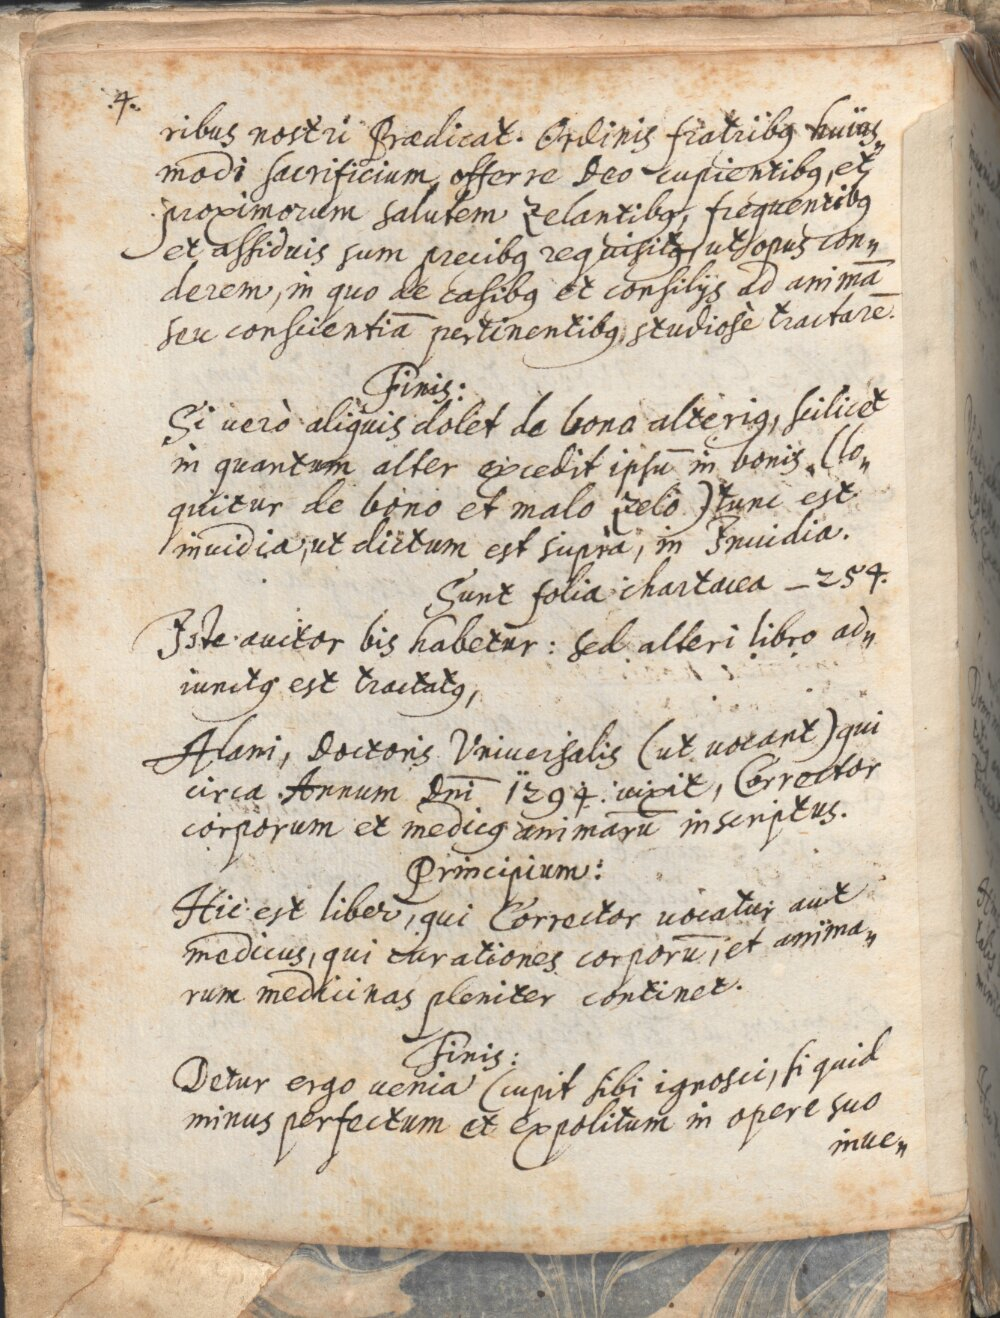 .4.
ribus nostri Prædicat. Ordinis fratribꝰ huiꝰs„
modi sacrificium offerre Deo cupientibꝰ, et
proximorum salutem zelantibꝰ, frequentibꝰ
et assiduis sum precibꝰ requisitꝰ, ut opus con„
derem, in quo de casibꝰ et consilijs ad animā
seu conscientiā pertinentibꝰ, studiosè tractarē.
Finis:
Si uerò aliquis dolet de bono alteriꝰ, scilicet
in quantum alter excedit ipsū in bonis, (lo„
quitur de bono et malo zelo) tunc est
inuidia, ut dictum est supra, in Inuidia.
Sunt folia chartacea – 254.
Iste auctor bis habetur: sed alteri libro ad„
iunctꝰ est tractatꝰ,
Alani, Doctoris Vniuersalis (ut uocant) qui
circa Annum Dnī 1294. uixit, Corrector
corporum et medicꝰ animarū inscriptus.
Principium:
Hic est liber, qui Corrector uocatur aut
medicus, qui curationes corporū, et anima„
rum medicinas pleniter continet.
Finis:
Detur ergo uenia (cupit sibi ignosci, si quid
minus perfectum et expolitum in opere suo
inue„